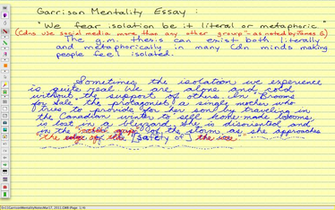 Garrison Mentality Essay :
"We fear isolation be it literal or metaphoric"
(Cdns use social media more than any other group - as noted by
The garr. theris can exist both literally
and metaphorically in many Cdn minds making
people feel isolated.
Sometimes the isolation we experience
is quite real. We are alone and cold
without the support of others. In Brooms
for Sale the protagonist a single mother who
tries to provide for her son by traveling in
the Canadian winter to sell home-made brooms,
is lost in a blizzard. She is disoriented and
in the of the storm as she approaches
the edge of the [safety of] the ice.